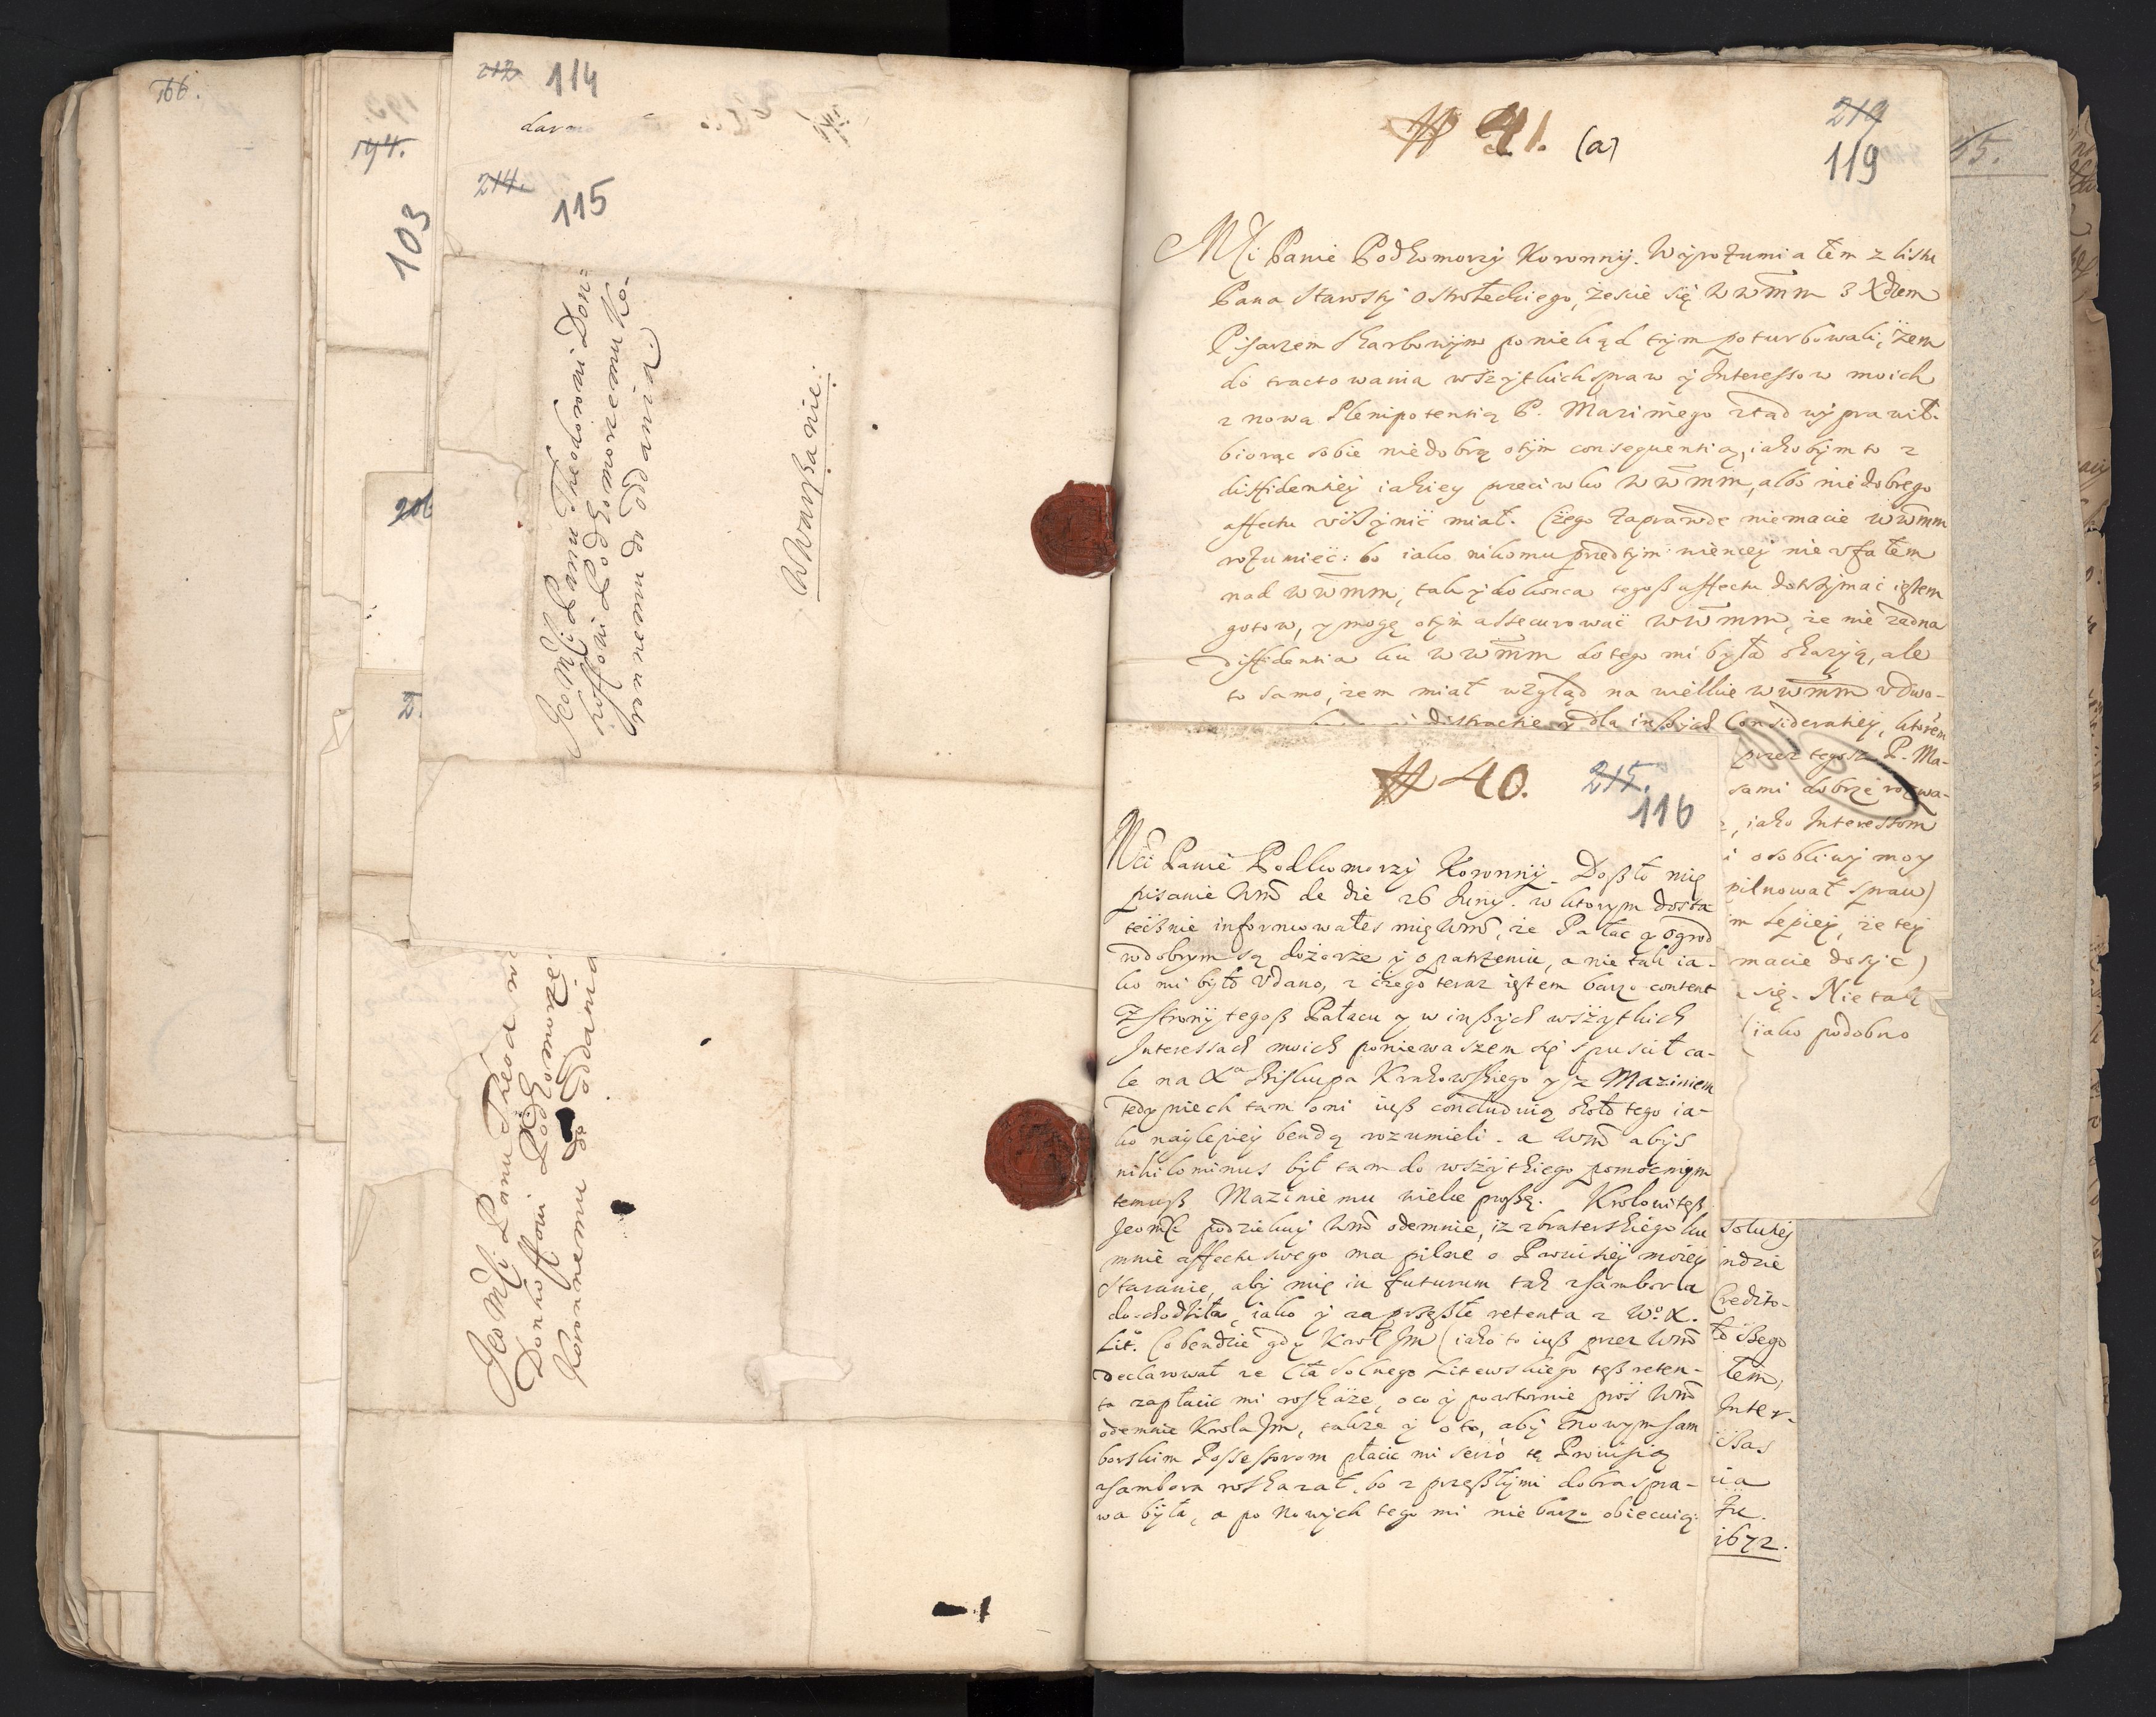 166.
194.
103
206
2.
212 114
darmo
214. 115
Jeo Mści Panu Theodorowi Dön=
hoffowi Podkomorzemu Ko-
ronnemu do oddania.
w Warszawie.
Jeo Mści Panu Theod
Donhoffowi Podkomorze
Koronnemu do oddania
# 41. (a)
219
119
65.
Mści Panie Podkomorzy Koronny. Wyrozumiałem z listu
Pana Starosty Ostrołęckiego, żeście się WWmm z Xdzem
Pisarzem Skarbowym poniekąd tym poturbowali, żem
do tractowania wszytkich spraw y Interessow moich
z nową Plenipotentią P. Maziniego ztąd wyprawił.
biorąc sobie niedobrą otym consequentią, iakobym to z
diffidentiey iakiey przeciwko WWmm, albo niedobrego
affectu uczynić miał. Czego zaprawdę niemacie WWmm
rozumieć: bo iako nikomu przedtym niencey nie ufałem
nad WWmm, tak y do konca tegoß affectu dotrzymać iestem
gotow, y mogę otym assecurować WWmm, że nie żadna
diffidentia ku WWmm do tego mi była okazyą, ale
to samo, żem miał wzgląd na wielkie WWmm u dwo-
distractie y dla inßych Consideratiey, ktorem
przez tegosz P. Ma-
sami dobrze rozwa-
, iako Interessom
i osobliwy moy
pilnował spraw)
m lepiey, że tey
macie dosyć)
się. Nie tak
(iako podobno
# 40. 215.
116
Mści Panie Podkomorzy Koronny. Doßło mię
pisanie Wmć de die 26 Juny. w ktorym dosta
tecznie informowałeś mię Wmć, że Pałac y ogrod
w dobrym są dozorze y opatrzeniu, a nie tak ia-
ko mi było udano, z czego teraz iestem barzo content
Z strony tegoß Pałacu y w inßych wszytkich
Interessach moich poniewaszem się spuscił ca-
le na Xa Biskupa Krakowskiego y z Maziniem
tedy niech tam oni iuß concluduią około tego ia-
ko naylepiey bendą rozumieli. a Wmć abys
nihilominus był tam do wszytkiego pomocnym
temuß Maziniemu wielce proßę. Krolowi teß
Jeomć podziękuy Wmć odemnie, iz z braterskiego ku
mnie affectu swego ma pilne o Prowisiey moiey
staranie, aby mię in futurum tak z Sambora
dochodziła, iako y za przeßłe retenta z Wo. X.
Lit. Co bendzie gdy Krol Jm (iako to iuß przez Wmć
declarował ze Cła Solnego Litewskiego teß reten-
ta zapłacic mi roskaże, oco y powtornie proś Wmć
odemnie Krola Jm, także y o to, aby nowym Sam
borskim Possessorom płacic mi serio tę Prowisią
z Sambora roskazał. bo z przeßłymi dobra spra-
wa była, a po nowych tego mi nie barzo obiecuią.
solutey
ndzie
Credito-
to ßego
łem,
Inter-
ßas
ia
Ju.
1672.